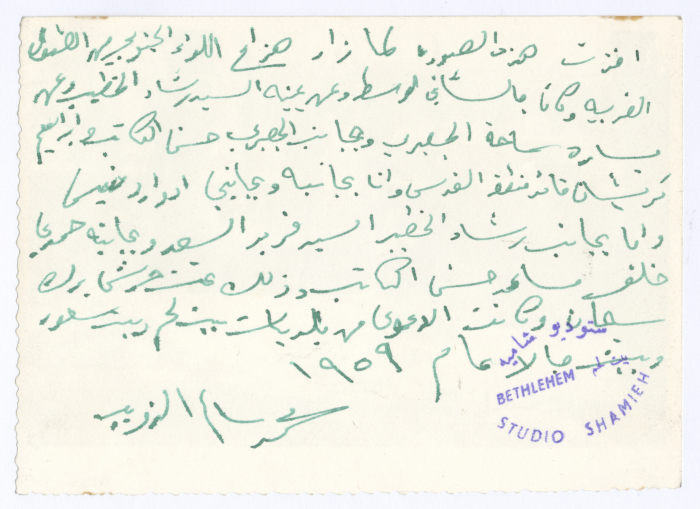 اخذت هذه الصورة لما زار هزاع اللواء الجنوبي من الضفة
الغربيه وكان بالشاني لوسط وعن يمينه السيد رشاد الخطيب وعن
يساره سماحة الجعبري وبجانب الجعبري حسن الكاتب وابراهيم
كريشان قائد منطقة القدس وانا بجانبه وبجانبي ادوارد خميس
واما بجانب رشاد الخطيب السيد فريد السعد وبجانبه حمدي
خلف مساعد حسن الكاتب وذلك تحت برك
سليمان وكانت الدعوى من بلديات بيت لحم وبيت ساحور
وبيت جالا عام ١٩٥٩
ستوديو شاميه
بيت لحم
BETHLEHEM
STUDIO SHAMIEH